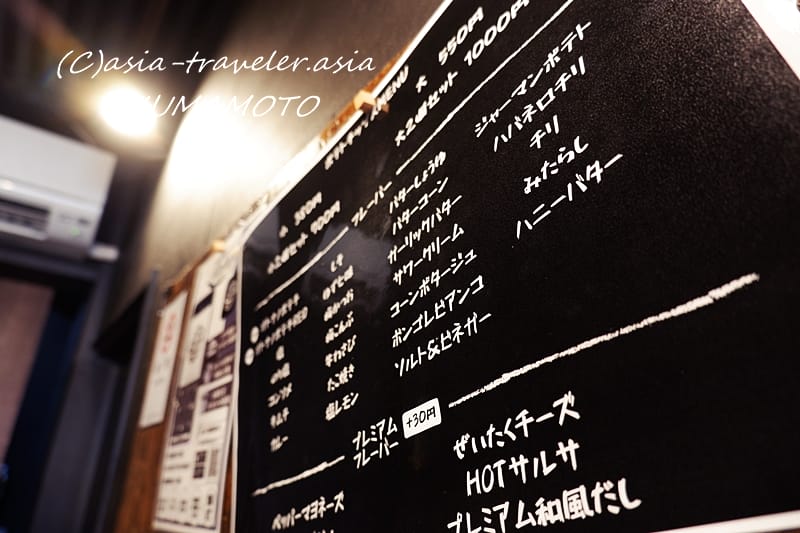 (C)asia-traveler.asia
KUMAMOTO
MENU
小 350円
大 550円
小2個セット 700円
大2個セット 1000円
フレーバー
塩
のり塩
コンソメ
キムチ
カレー
もち
ゆず七味
梅かつお
梅こんぶ
牛わさび
たこ焼き
塩レモン
バターしょうゆ
バターコーン
ガーリックバター
サワークリーム
コーンポタージュ
ボンゴレビアンコ
ソルト&ビネガー
ジャーマンポテト
ハバネロチリ
チリ
みたらし
ハニーバター
プレミアム
フレーバー
+30円
ペッパーマヨネーズ
ぜいたくチーズ
HOTサルサ
プレミアム和風だし